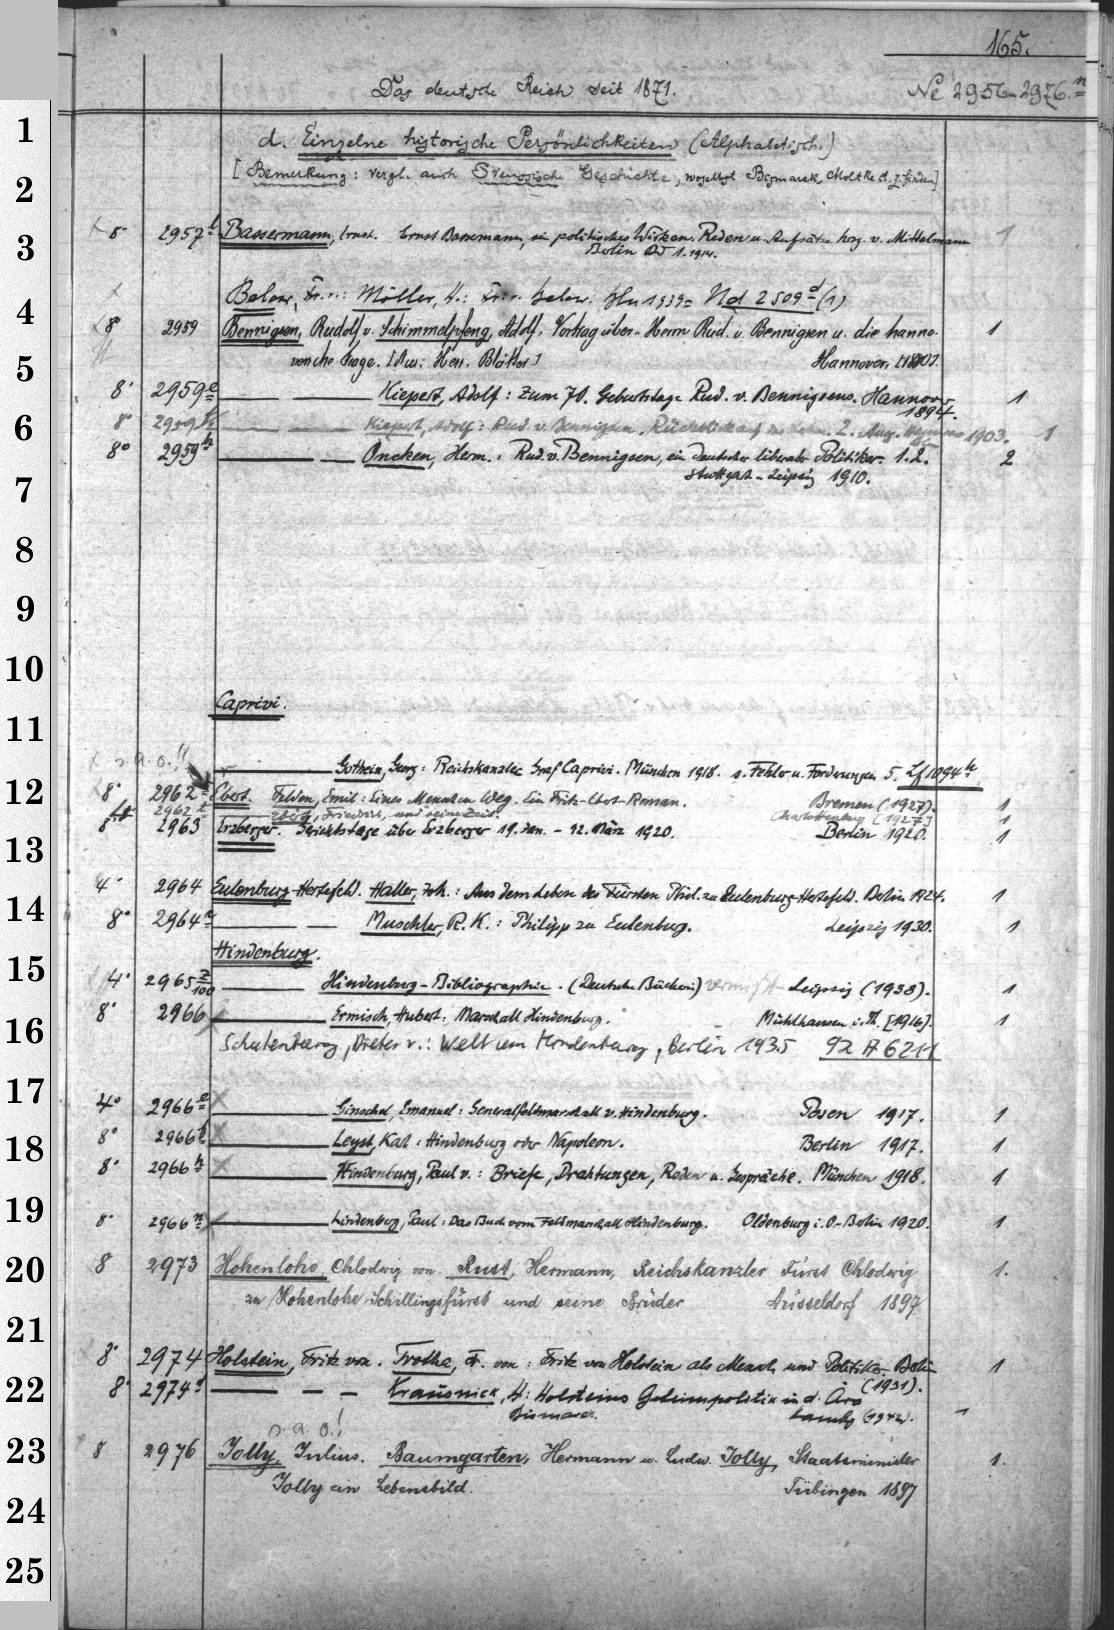 165.
Das deutsche Reich seit 1871. № 2956-2976.n
1 d. Einzelne historische Persönlichkeiten (Alphabetisch.)
2 [Bemerkung: vergl. auch Preussische Geschichte, woselbst Bismarck, Moltke zu finden]
3 8° 2957 Bassermann, Ernst. Ernst Bassermann, sein politisches Wirken. Reden u. Aufsätze hrsg. v. Mittelmann 1
Berlin Bd 1. 1914.
4 Below, Fr. v.: Möller, H.: Fr. v. Below. 1939 = Nd 2509 d (1)
8° 2959 Bennigsen, Rudolf v. Schimmelpfeng, Adolf. Vortrag über Herrn Rud. v. Bennigsen u. die hanno- 1
5 versche Frage. Hannover,
8° 2959 e — — Kiepert, Adolf: Zum 70. Geburtstage Rud. v. Bennigsens. Hannover 1
1894.
6 8° 2959 — — Kiepert, Adolf: Rud. v. Bennigsen. Rückblick auf das Leben. 2. Aufl. Hannover 1903. 1
8° 2959 h — — Oncken, Herm.: Rud. v. Bennigsen, ein deutscher liberaler Politiker. 1.2. 2
7 Stuttgart-Leipzig 1910.
8
9
10
Caprivi.
11
s. a. o.!!
— Gothein, Georg: Reichskanzler Graf Caprivi. München 1918. s. Fehler u. Forderungen 5. Lf 1094 h
12 8° 2962 Ebert. Felden, Emil: Eines Menschen Weg. Ein Fritz-Ebert-Roman. Bremen (1927). 1
2962 t Friedrich, und seine Zeit. Charlottenburg [1927] 1
8° 2963 Erzberger. Gerichtstage über Erzberger 19. Jan. - 12. März 1920. Berlin 1920. 1
13
4° 2964 Eulenburg-Hertefeld. Haller, Joh.: Aus dem Leben des Fürsten Phil. zu Eulenburg-Hertefeld. Berlin 1924. 1
14 8° 2964 a — — Muschler, R. K.: Philipp zu Eulenburg. Leipzig 1930. 1
Hindenburg.
15 4° 2965 z/100 — Hindenburg-Bibliographie. (Deutsche Bücherei) vermißt Leipzig (1938). 1
8° 2966 — Ermisch, Hubert: Marschall Hindenburg. Mühlhausen i. Th. [1916]. 1
16 Schulenburg, Dieter v.: Welt um Hindenburg, Berlin 1935 92 A 6211
17 4° 2966 e — Ginschel, Emanuel: Generalfeldmarschall v. Hindenburg. Posen 1917. 1
18 8° 2966 f — Leyst, Karl: Hindenburg oder Napoleon. Berlin 1917. 1
8° 2966 h — Hindenburg, Paul v.: Briefe, Drahtungen, Reden u. Gespräche. München 1918. 1
19 8° 2966 n — Lindenberg, Paul: Das Buch vom Feldmarschall Hindenburg. Oldenburg i. O-Berlin 1920. 1
20 8 2973 Hohenlohe, Chlodwig von. Rust, Hermann, Reichskanzler Fürst Chlodwig 1.
zu Hohenlohe-Schillingsfürst und seine Brüder Düsseldorf 1897
21
8° 2974 Holstein, Fritz von. Trotha, F. von: Fritz von Holstein als Mensch und Politiker. Berlin 1
(1931).
22 8° 2974 d — — — Krausnick, H: Holsteins Geheimpolitik in d. Ära
Bismarck. Hamburg (1942). 1
s. a. o.!
23 8 2976 Jolly, Julius. Baumgarten, Hermann u. Ludw. Jolly, Staatsminister 1.
Jolly ein Lebensbild. Tübingen 1897
24
25